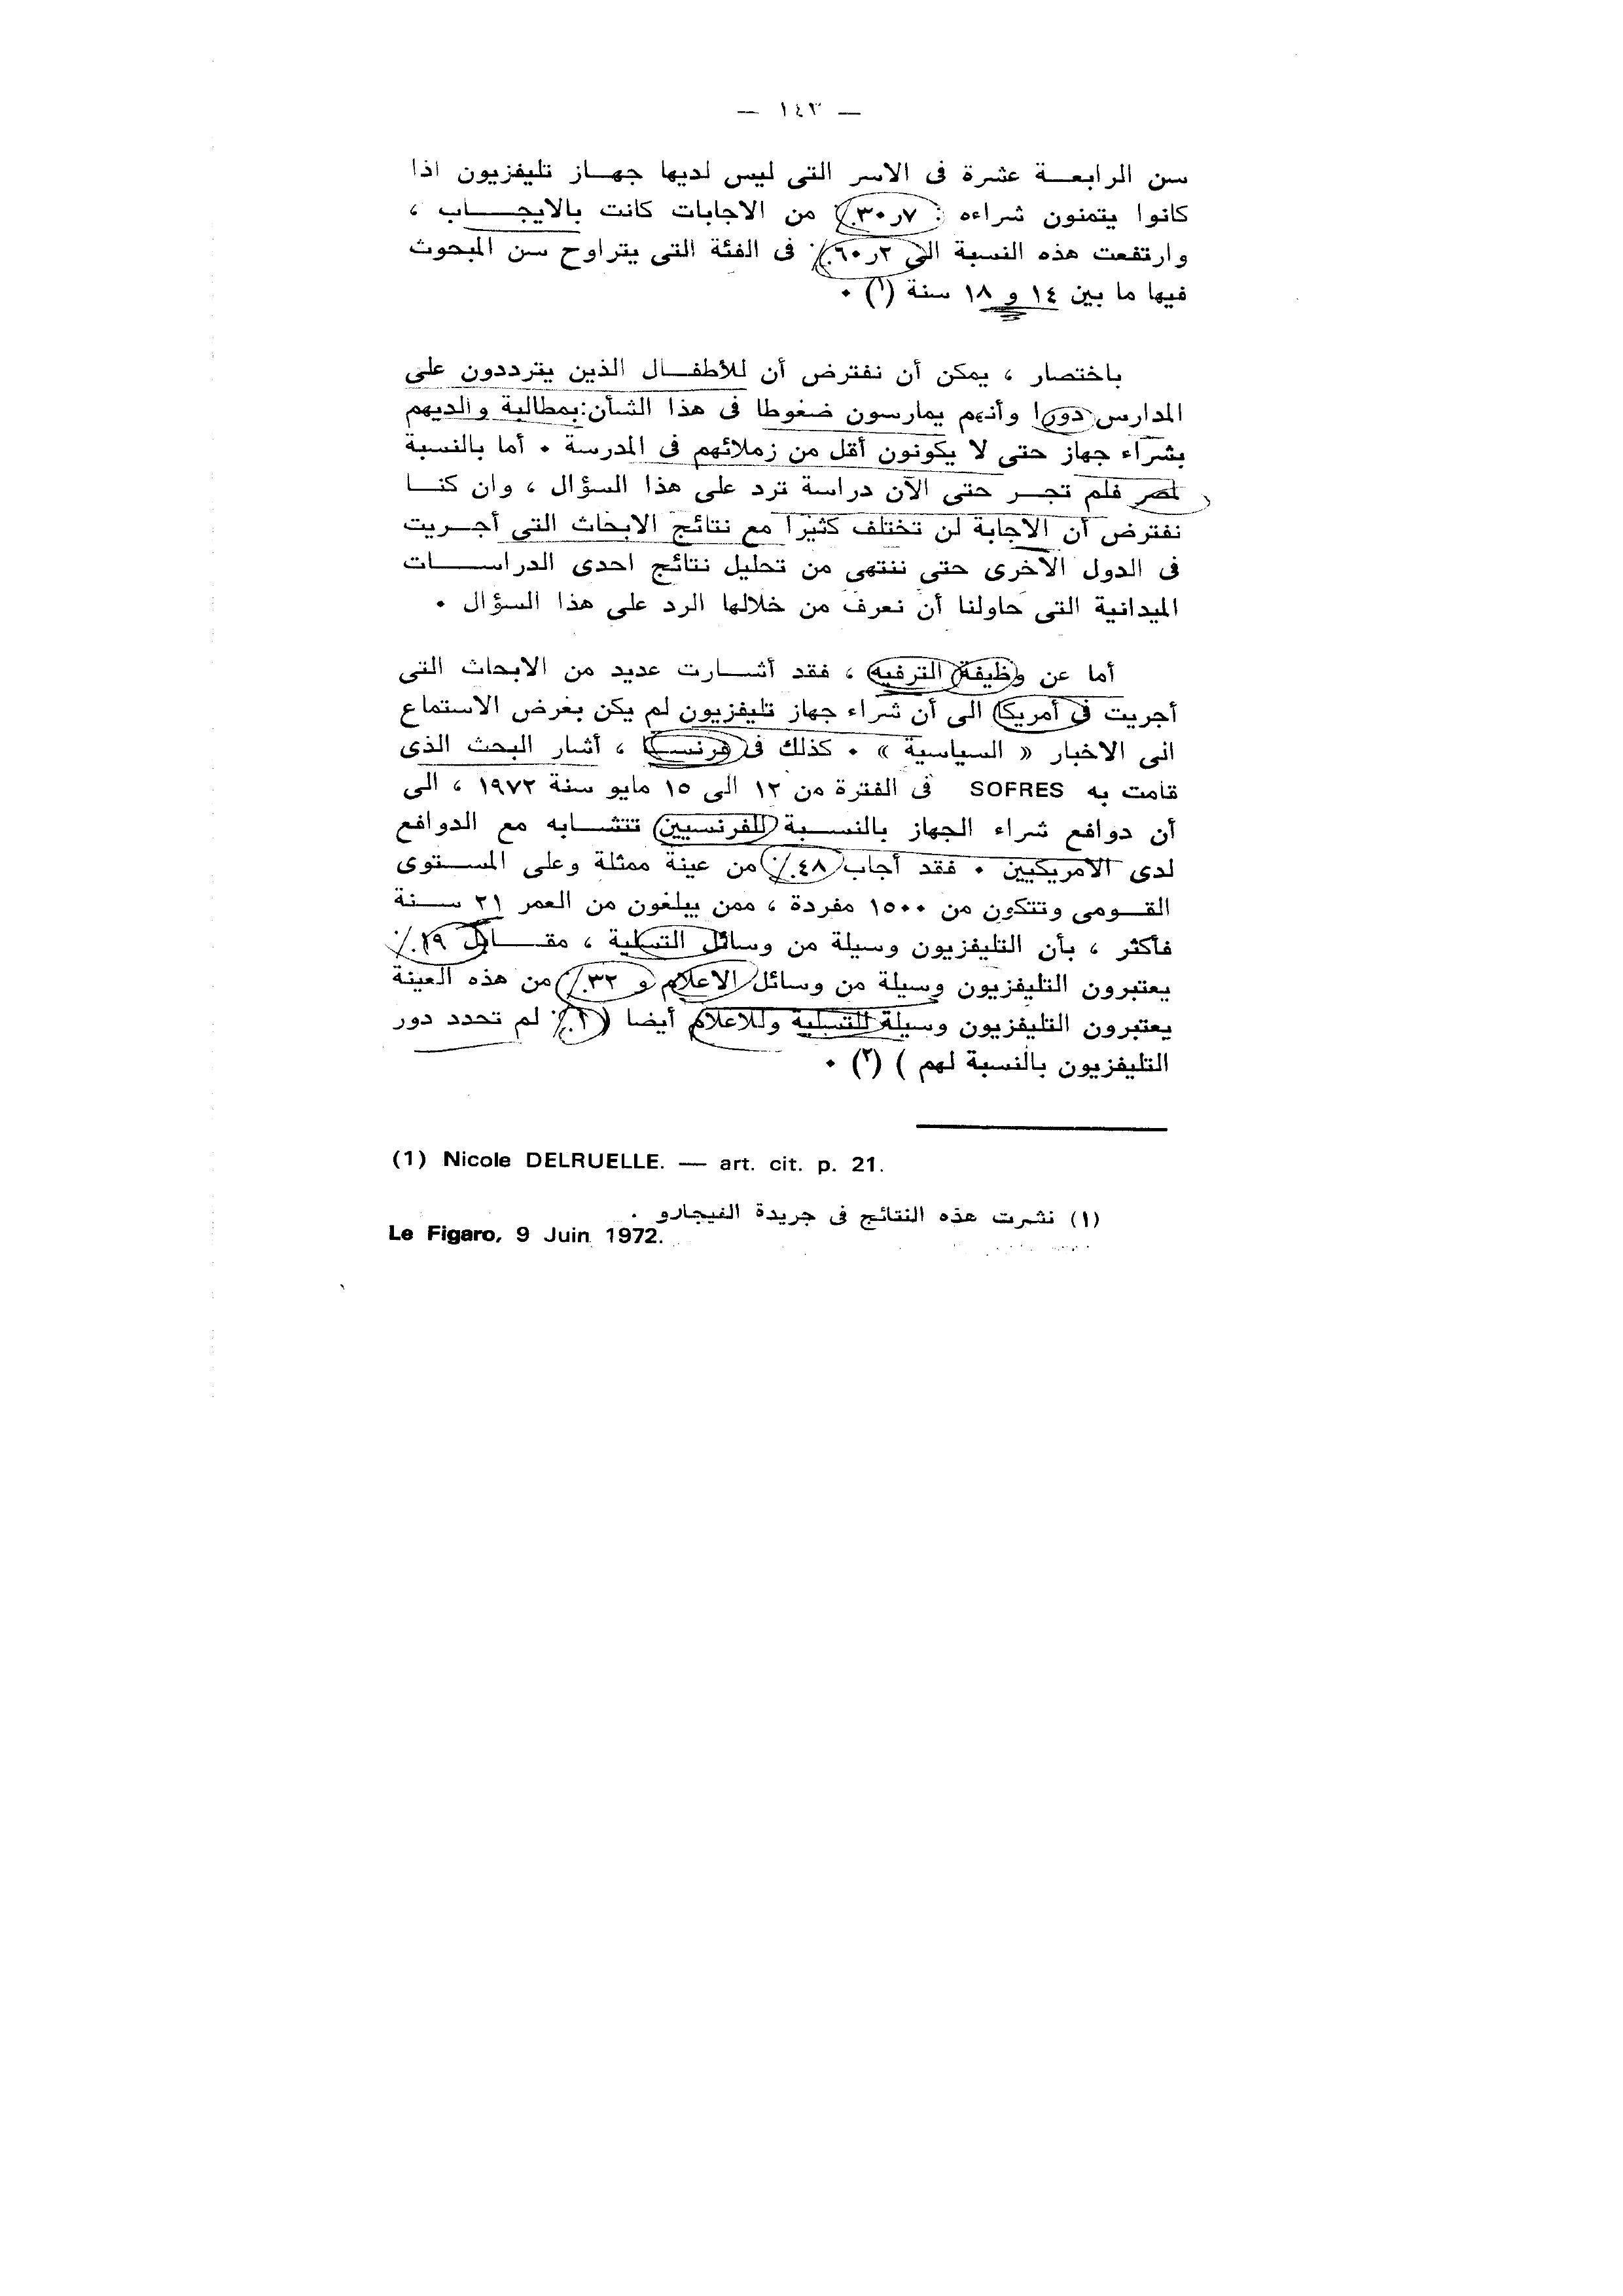 — ١٤٣ —
سن الرابعــة عشرة فى الاسر التى ليس لديها جهــاز تليفزيون اذا
كانوا يتمنون شراءه : ٧ر٣٠٪ من الاجابات كانت بالايجـــاب ،
وارتفعت هذه النسبة الى ٢ر٦٠٪ فى الفئة التى يتراوح سن المبحوث
فيها ما بين ١٤ و ١٨ سنة (١) ٠
باختصار ، يمكن أن نفترض أن للأطفــال الذين يترددون على
المدارس دورا وأنهم يمارسون ضغوطا فى هذا الشأن:بمطالبة والديهم
بشراء جهاز حتى لا يكونون أقل من زملائهم فى المدرسة ٠ أما بالنسبة
لمصر فلم تجــر حتى الآن دراسة ترد على هذا السؤال ، وان كنــا
نفترض أن الاجابة لن تختلف كثيرا مع نتائج الابحاث التى أجــريت
فى الدول الأخرى حتى ننتهى من تحليل نتائج احدى الدراســـات
الميدانية التى حاولنا أن نعرف من خلالها الرد على هذا السؤال ٠
أما عن وظيفة الترفيه ، فقد أشــارت عديد من الابحاث التى
أجريت فى أمريكا الى أن شراء جهاز تليفزيون لم يكن بغرض الاستماع
الى الاخبار « السياسية » ٠ كذلك فى فرنســا ، أشار البحث الذى
قامت به SOFRES فى الفترة من ١٢ الى ١٥ مايو سنة ١٩٧٢ ، الى
أن دوافع شراء الجهاز بالنســبة للفرنسيين تتشــابه مع الدوافع
لدى الأمريكيين ٠ فقد أجاب ٤٨٪ من عينة ممثلة وعلى المســتوى
القــومى وتتكون من ١٥٠٠ مفردة ، ممن يبلغون من العمر ٢١ ســنة
فأكثر ، بأن التليفزيون وسيلة من وسائل التسلية ، مقــابل ١٩٪
يعتبرون التليفزيون وسيلة من وسائل الاعلام و ٣٢٪ من هذه العينة
يعتبرون التليفزيون وسيلة للتسلية وللاعلام أيضا ( ١٪ لم تحدد دور
التليفزيون بالنسبة لهم ) (٢) ٠
(1) Nicole DELRUELLE. — art. cit. p. 21.
(١) نشرت هذه النتائج فى جريدة الفيجارو .
Le Figaro, 9 Juin 1972.